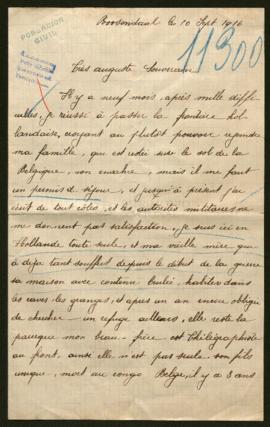 Roosendaal le 10 Sept 1916
POBLACION
CIVIL
11300
Très auguste Souverain
Il y a neuf mois, après mille diffi-
cultés, je réussis à passer la frontière hol-
landaise, croyant au plutôt pouvoir rejoindre
ma famille, qui est restée sur le sol de la
Belgique, non envahie, mais il me faut
un permis de séjour, et jusqu'à présent j'ai
écrit de tout côtés, et les autorités militaires ne
me donnent pas satisfaction, je suis ici en
Hollande toute seule, et ma vieille mère qui
a déjà tant souffert depuis le début de la guerre
sa maison avec contenu brulée, habiter dans
les caves les granges, et après un an encore obligée
de chercher un refuge ailleurs, elle reste là
parceque mon beau-frère est Télégraphiste
au front, ainsi elle n'est pas seule, son fils
unique, mort au Congo Belge, il y a 8 ans